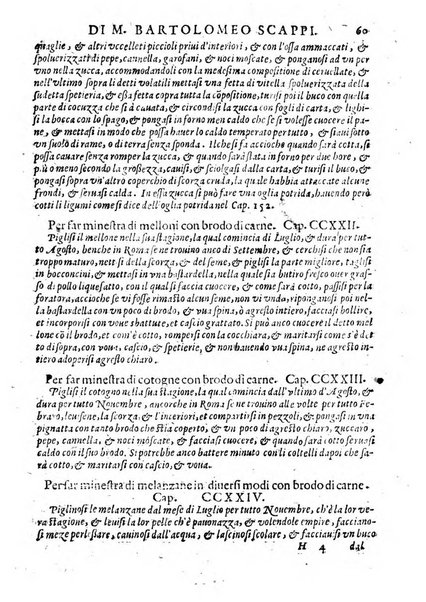 DI M. BARTOLOMEO SCAPPI. 60
quaglie, & altri uccelletti piccioli priui d'interiori, & con l'ossa ammaccati, &
spoluerizzati di pepe, cannella, garofani, & noci moscate, & ponganosi ad vn per
vno in la zucca, accommodandoli con la medesima compositione di ceruellate, & nel
intermezzo di sopra à detti volatili mettasi vna fetta di vitella spoluerizzata della
sudetta spetieria, & esso che sarà piena, & turisi poi il buco con quella
parte di cocuzza che si è cauata, & circondisi la zucca con fogli di carta, & lighi-
si la bocca con lo spago, & pongasi ad vn forno men caldo che se si volesse cuocere il pa-
ne, & stiauisi in modo che possa hauer lo caldo temperato per tutto, & sia uisi sotto
vn suolo di rame, o uer tiera senza sponda. Il che si fa acciochè quando sarà cotta, si
possa cauare senza romper la zucca, & quando sarà stata in forno per due hore, &
più secondo la grossezza, cauisi, & sciolgasi dalla carta, & turisi il buco, &
pongasi sopra vn'altro coperchio di scorza cruda, la quale habbia attaccate alcune
frondi, & seruasi calda. In essa zucca si può fare vna oglia potrida, hauendo però
cotti li ligumi come si dice dell'oglia potrida nel Cap. 152.
Per far minestra di melloni con brodo di carne. Cap. CCXXII.
Piglisi il mellone nella sua stagione, la qual comincia di Luglio, & dura per tutto
Agosto, benche in Roma se ne trouino anco di Settembre, & cerchisi che non sia
troppo maturo, nett si di scorza, & seme, & piglisi la parte migliore, & taglisi
in bocconcini, & mettasi in vna bastardella, nella quale sia butiro fresco ouer gras-
so di pollo liquefatto, con il qual si faccia cuocere, & come sarà cotto, passisi per la
foratora, acciochè se vi fosse rimasto alcun seme, non vi vada, riponganosi poi nella
la bastardella con vn poco di brodo, & vua spina, ò agresto intiero, facciasi bollire,
et incorporisi con voua sbattute, et cascio grattato. Si può ancora cuocere il detto mel
lone cò il brodo, et com'è cotto, romperlo con il cocchiaro, et ponerui voua, et agre-
sto come di sopra, saluo se con cascio, & spetierie, & non hauendo vua spina, ne agresto in-
tiero adoperisi agresto chiaro.
Per far minestra di cotogne con brodo di carne. Cap. CCXXIII.
Piglisi il cotogno nella sua stagione, la qual comincia dall'vltimo d'Agosto, &
dura per tutto Nouembre, ancorche in Roma se ne trouino alle volte per tutto Fe-
braro, leuisene la scorza, & l'interiori, et compartisi in pezzoli, & pongasi in vna
pignatta con tanto brodo che stia coperto, & vn poco di agresto chiaro, zuccaro,
pepe, cannella, & noci moscate, & facciasi cuocere, & quando sarà cotto seruasi
con il suo brodo. Si potrebbe anco battere minuto con li coltelli dapoi che sa-
rà cotto, & maritarsi con cascio, & voua.
Per far minestra di melanzane in diuersi modi con brodo di carne.
Cap. CCXXIV.
Piglinosi le melanzane dal mese di Luglio per tutto Nouembre, ch'è la lor ve-
ra stagione, & leuisi la lor pelle ch'è pauonazza, & volendole empire, facciano-
si meze perlessare, cauinosi dall'acqua, & lascinosi scolare, & facciasi vn buco
H 4 dal